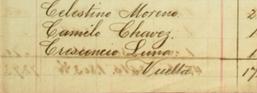 Celestino Moreno. 2
Camilo Chavez. 1
Crescencio Luna. 1
Vuelta 17